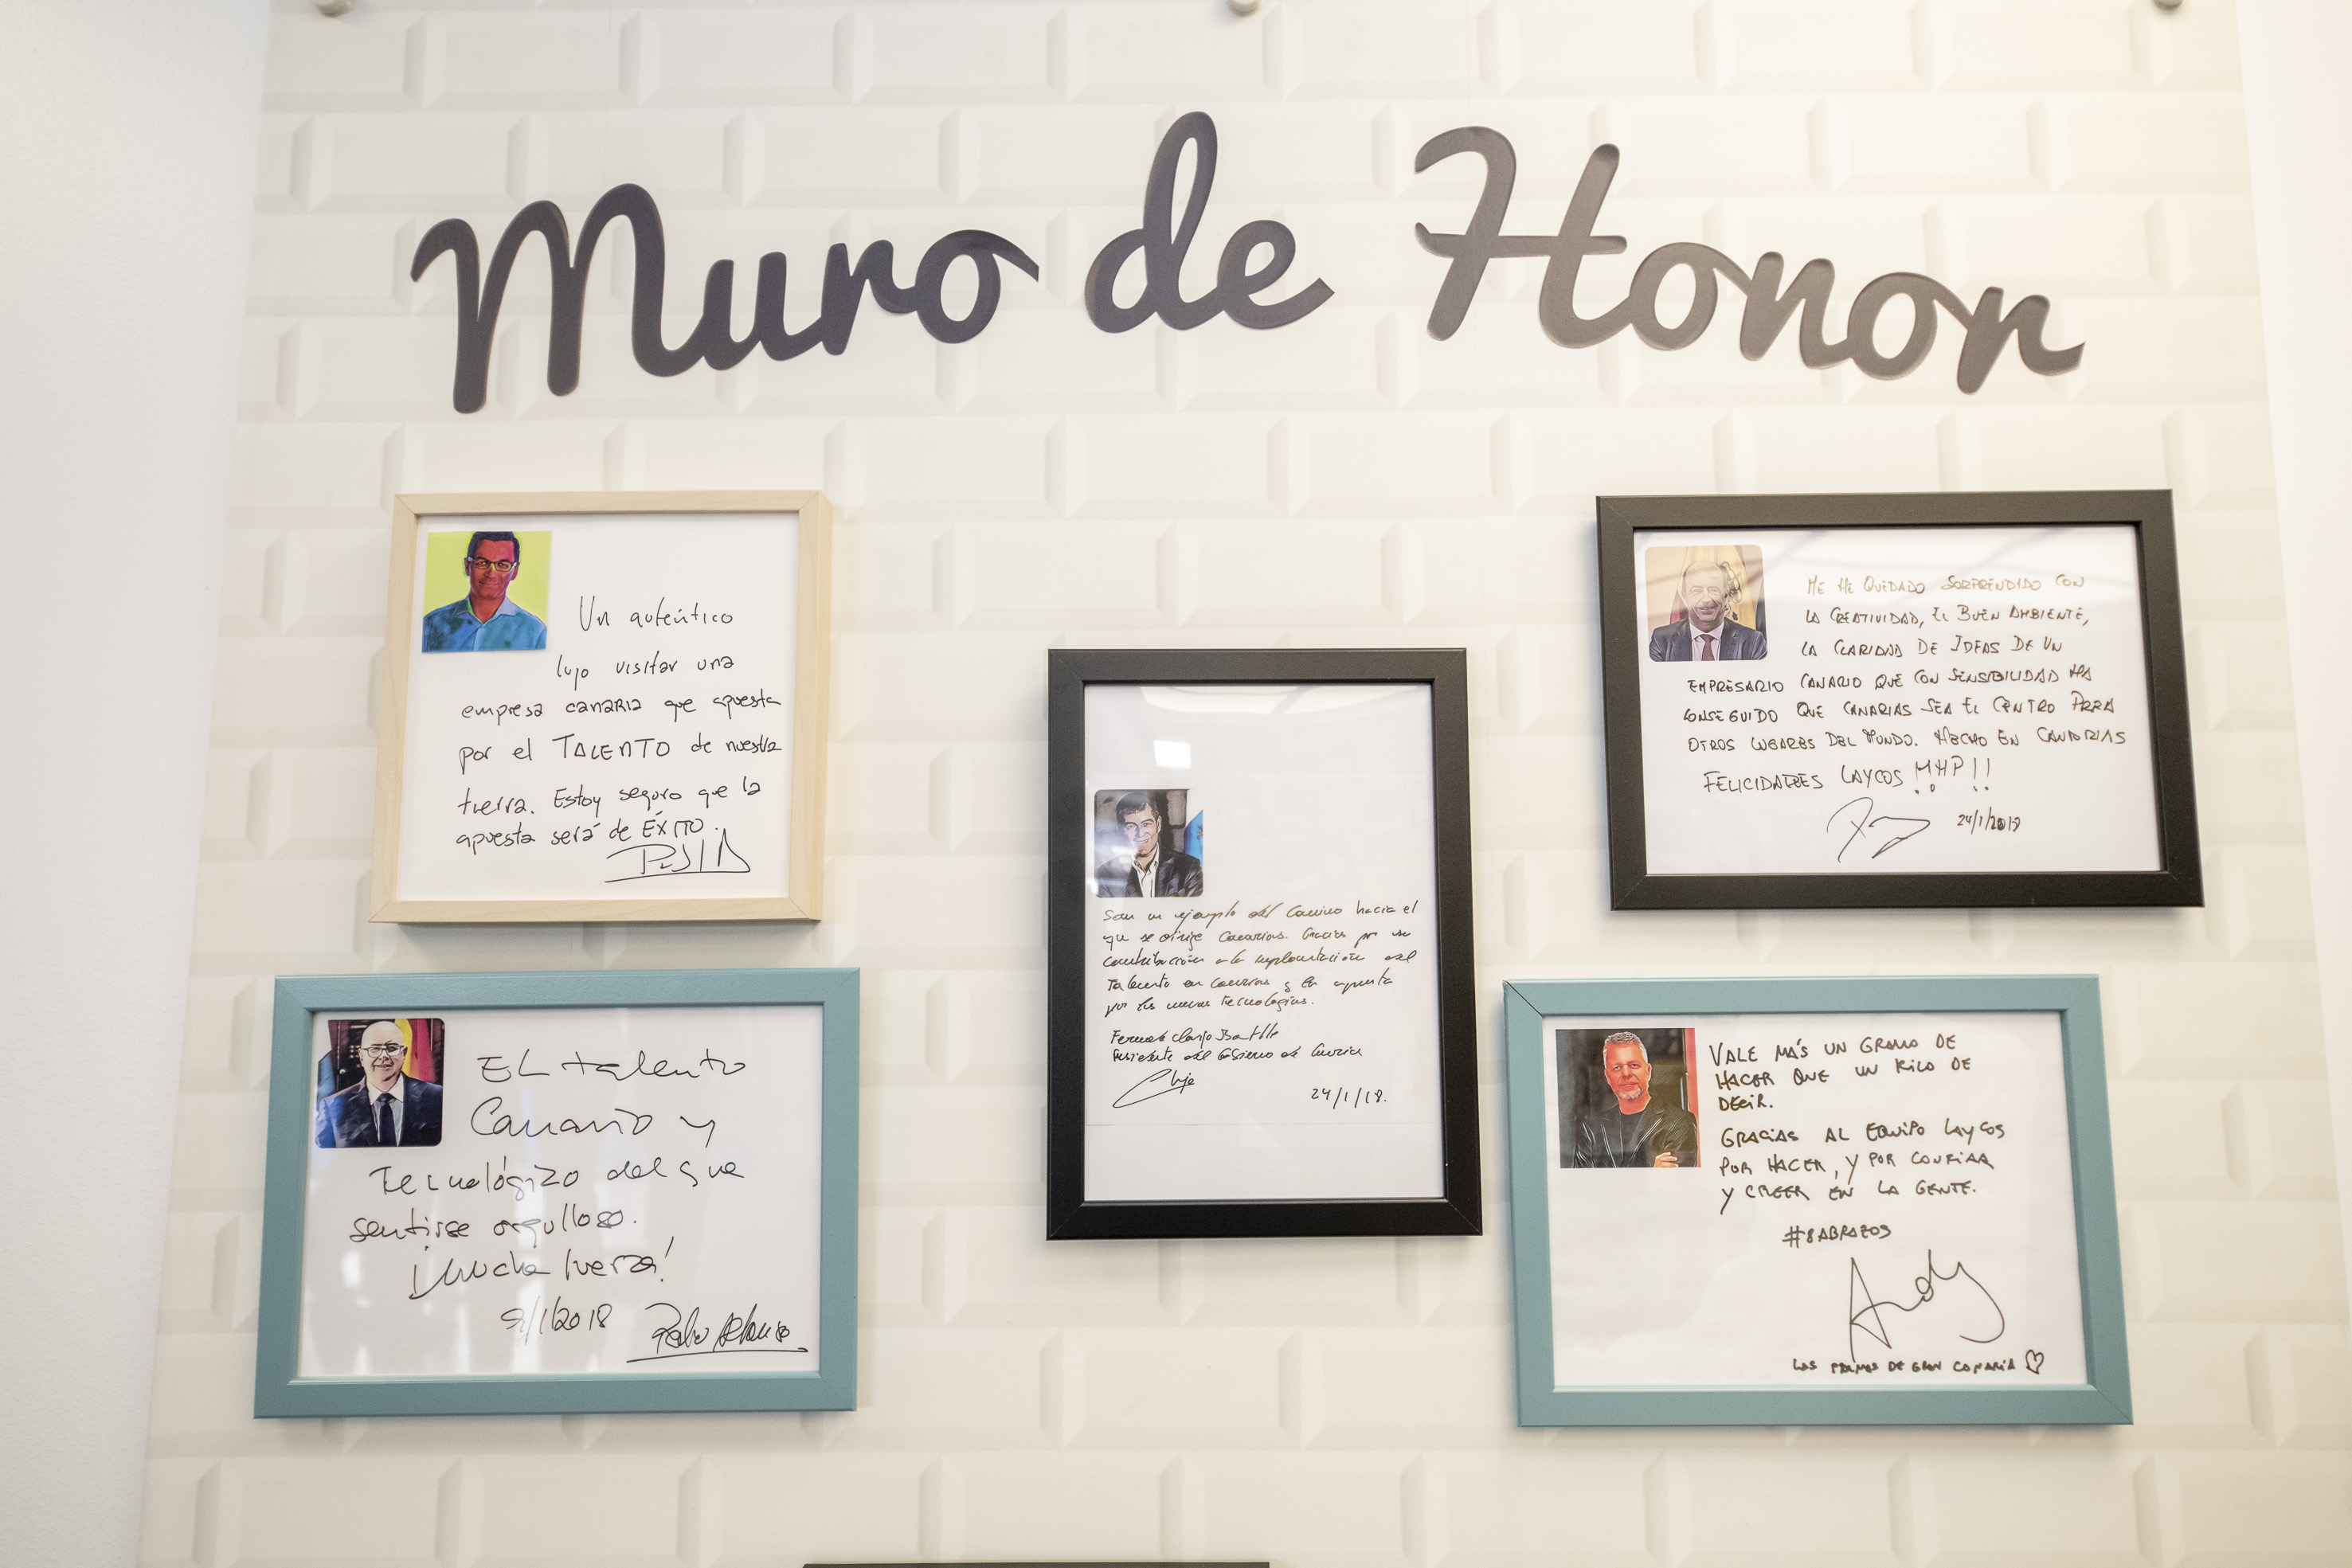 Muro de Honor
Un auténtico
lujo visitar una
empresa canaria que apuesta
por el TALENTO de nuestra
tierra. Estoy seguro que la
apuesta será de ÉXITO.
EL talento
Canario y
Tecnológizo del que
sentirse orgulloso.
¡Mucha fuerza!
9/1/2018 Pedro Alonso
Son un ejemplo del camino hacia el
que se dirige Canarias. Gracias por su
contribución a la implantación del
Talento en Canarias y la apuesta
por las nuevas tecnologías.
Fernando Clavijo Batlle
Presidente del Gobierno de Canarias
24/1/18.
ME HE QUEDADO SORPRENDIDO CON
LA CREATIVIDAD, EL BUEN AMBIENTE,
LA CLARIDAD DE IDEAS DE UN
EMPRESARIO CANARIO QUE CON SENSIBILIDAD HA
CONSEGUIDO QUE CANARIAS SEA EL CENTRO PARA
OTROS LUGARES DEL MUNDO. HECHO EN CANARIAS
FELICIDADES LAYCOS MHP!!
24/1/2018
VALE MÁS UN GRAMO DE
HACER QUE UN KILO DE
DECIR.
GRACIAS AL EQUIPO LAYCOS
POR HACER, Y POR CONFIAR
Y CREER EN LA GENTE.
#8ABRAZOS
Andy
LAS PALMAS DE GRAN CANARIA